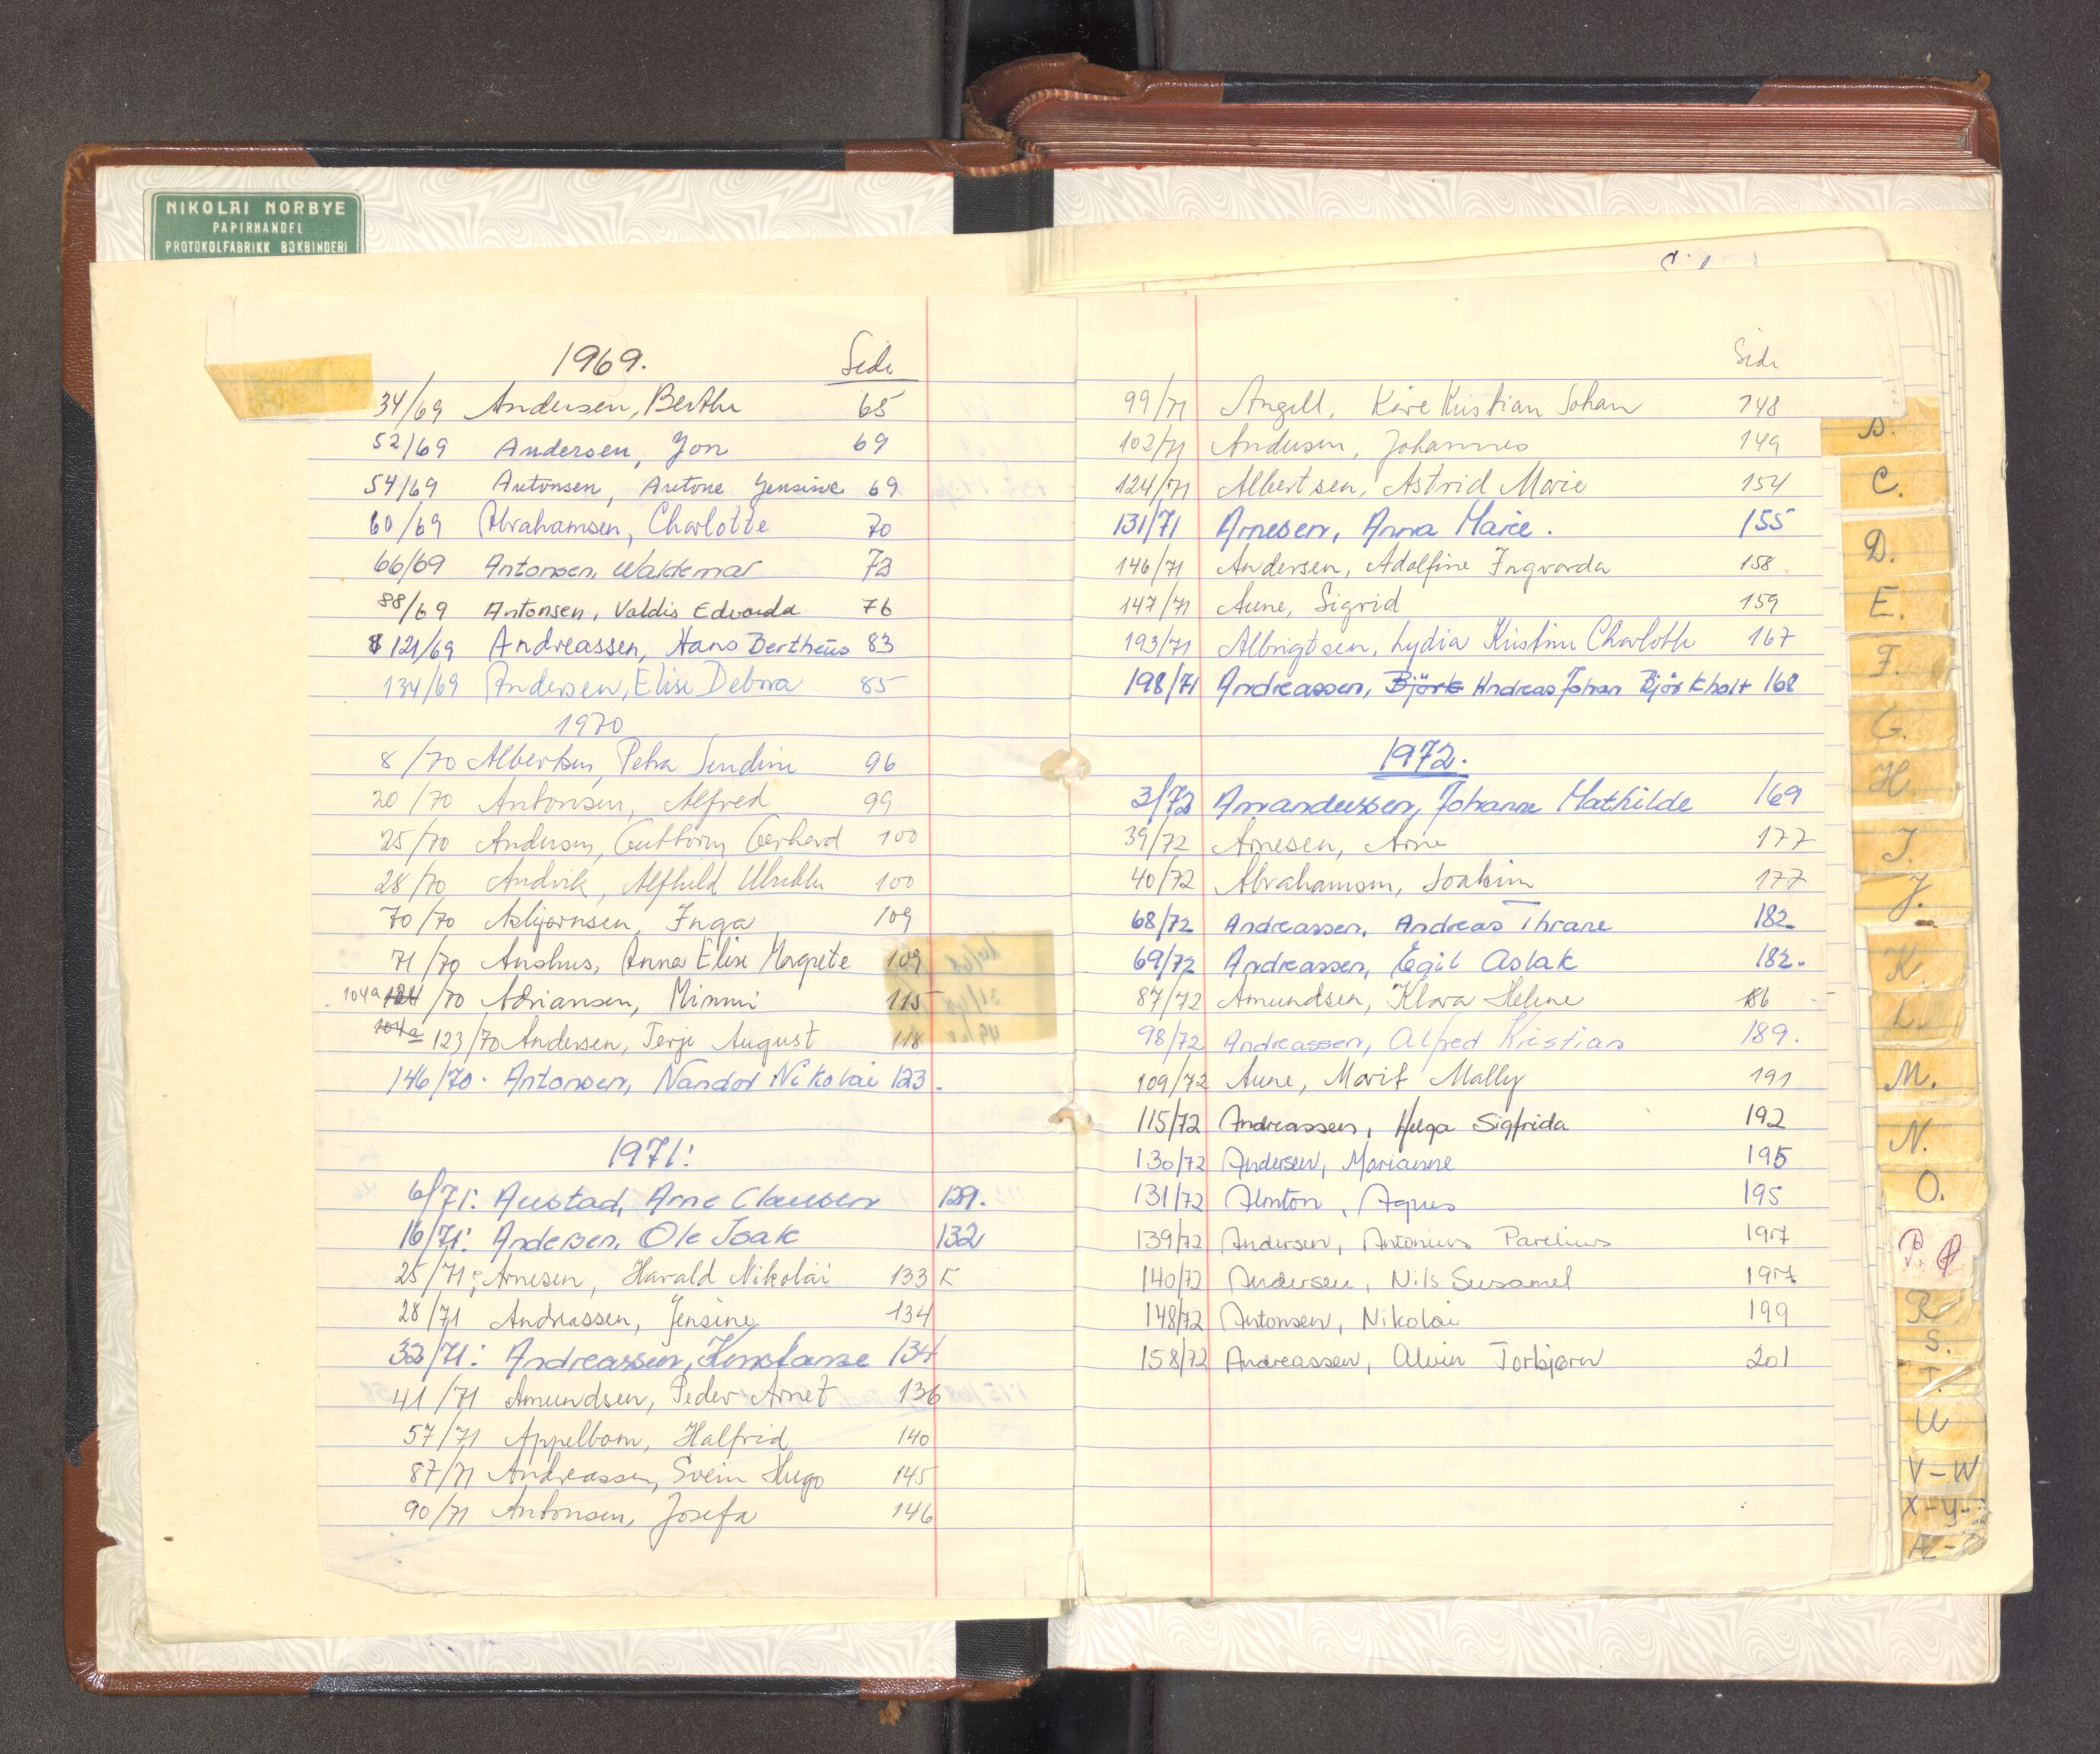 NIKOLAI NORBYE
PAPIRHANDEL
PROTOKOLFABRIKK BOKBINDERI
1969. Side
34/69 Andersen, Berthe 65
52/69 Andersen, Jon 69
54/69 Antonsen, Antone Jensine 69
60/69 Abrahamsen, Charlotte 70
66/69 Antonsen, Waldemar 73
88/69 Antonsen, Valdis Edvarda 76
121/69 Andreassen, Hans Bertheüs 83
134/69 Andersen, Elise Debora 85
1970
8/70 Albertsen, Petra Sendine 96
20/70 Antonsen, Alfred 99
25/70 Andersen, Guttorm Gerhard 100
28/70 Andvik, Alfhild 100
70/70 Asbjørnsen, Inga 109
71/70 Anshus, Anna Elise Margrete 109
104a 124/70 Adriansen, Mimmi 115
104a 123/70 Andersen, Terje August 118
146/70. Antonsen, Nandor Nikolai 123.
1971:
6/71: Austad, Arne Clausen 129.
16/71: Andersen, Ole Isak 132
25/71: Arnesen, Harald Nikolai 133
28/71 Andreassen, Jensine 134
33/71: Andreassen, Konstanse 134
41/71 Amundsen, Peder Arnet 136
57/71 Appelbom, Halfrid 140
87/71 Andreassen, Svein Hugo 145
90/71 Antonsen, Josefa 146
Side
99/71 Angell, Kåre Kristian Johan 148
102/71 Andersen, Johannes 149
124/71 Albertsen, Astrid Marie 154
131/71 Arnesen, Anna Marie. 155
146/71 Andersen, Adolfine Ingvarda 158
147/71 Aune, Sigrid 159
193/71 Albrigtsen, Lydia Kristine Charlotte 167
198/71 Andreassen, Björk Andreas Johan Björkholt 168
1972.
3/72 Amandussen, Johanne Mathilde 169
39/72 Arnesen, Arne 177
40/72 Abrahamsen, Joakim 177
68/72 Andreassen, Andreas Thrane 182
69/72 Andreassen, Egil Aslak 182.
87/72 Amundsen, Klara Helene 186
98/72 Andreassen, Alfred Kristian 189.
109/72 Aune, Marit Mally 191
115/72 Andreassen, Helga Sigfrida 192
130/72 Andersen, Marianne 195
131/72 Almton, Agnes 195
139/72 Andersen, Antonius Parelius 197
140/72 Andersen, Nils Susamel 197
148/72 Antonsen, Nikolai 199
158/72 Andreassen, Alvin Torbjørn 201
B.
C.
D.
E.
F.
G.
H.
I.
J.
K.
L
M.
N.
O.
P. Q
R
S.
T.
U
V-W
X-Y-
Æ-